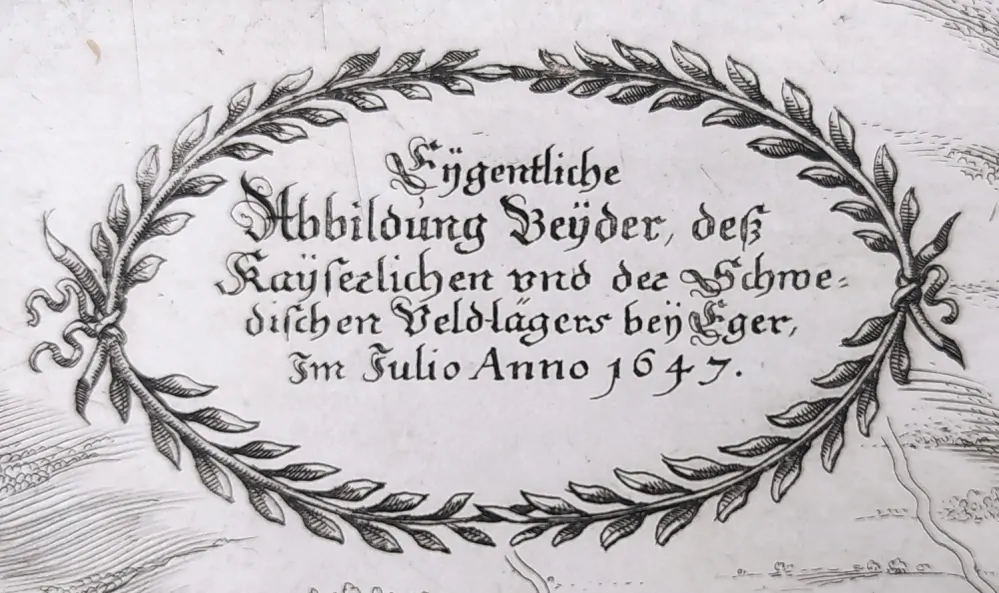 Eÿgentliche
Abbildung Beÿder, deß
Kaÿſerlichen vnd der Schwe-
diſchen Veldlägers beÿ Eger,
Im Julio Anno 1647.